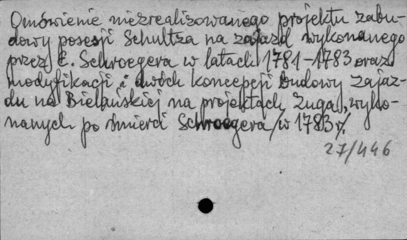 Omówienie niezrealizowanego projektu zabu-
dowy posesji Schultza na zajazd wykonanego
przez E. Schroegera w latach 1781-1783 oraz
modyfikacji i dwóch koncepcji budowy zajaz-
du na Bielańskiej na projektach Zuga, wyko-
nanych po śmierci Schroegera /w 1783 r./
27/446